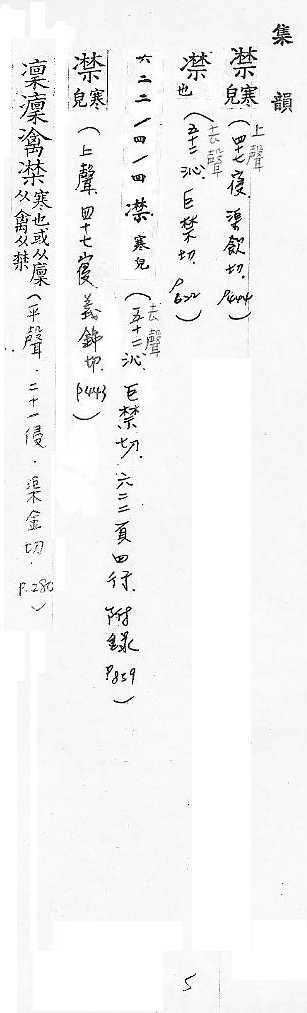 集韻
凚 寒皃 (上聲 四十七寑.渠飲切. P444)
凚 也 (去聲 五十二沁.巨禁切. P622)
六二二/四/四 凚 寒皃 (去聲 五十二沁.巨禁切.六二二頁四行.附錄 P859)
凚 寒皃 (上聲 四十七寑.義錦切. P443)
凜 寒也或从廩从禽从禁 (平聲.二十一侵.渠金切. P.280)
5